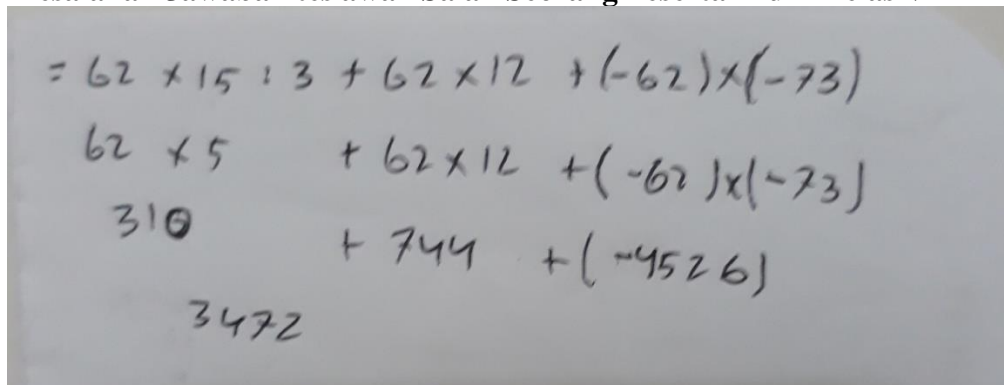 = 62 × 15 : 3 + 62 × 12 + (-62) × (-73)
62 × 5 + 62 × 12 + (-62) × (-73)
310 + 744 + (-4526)
3472